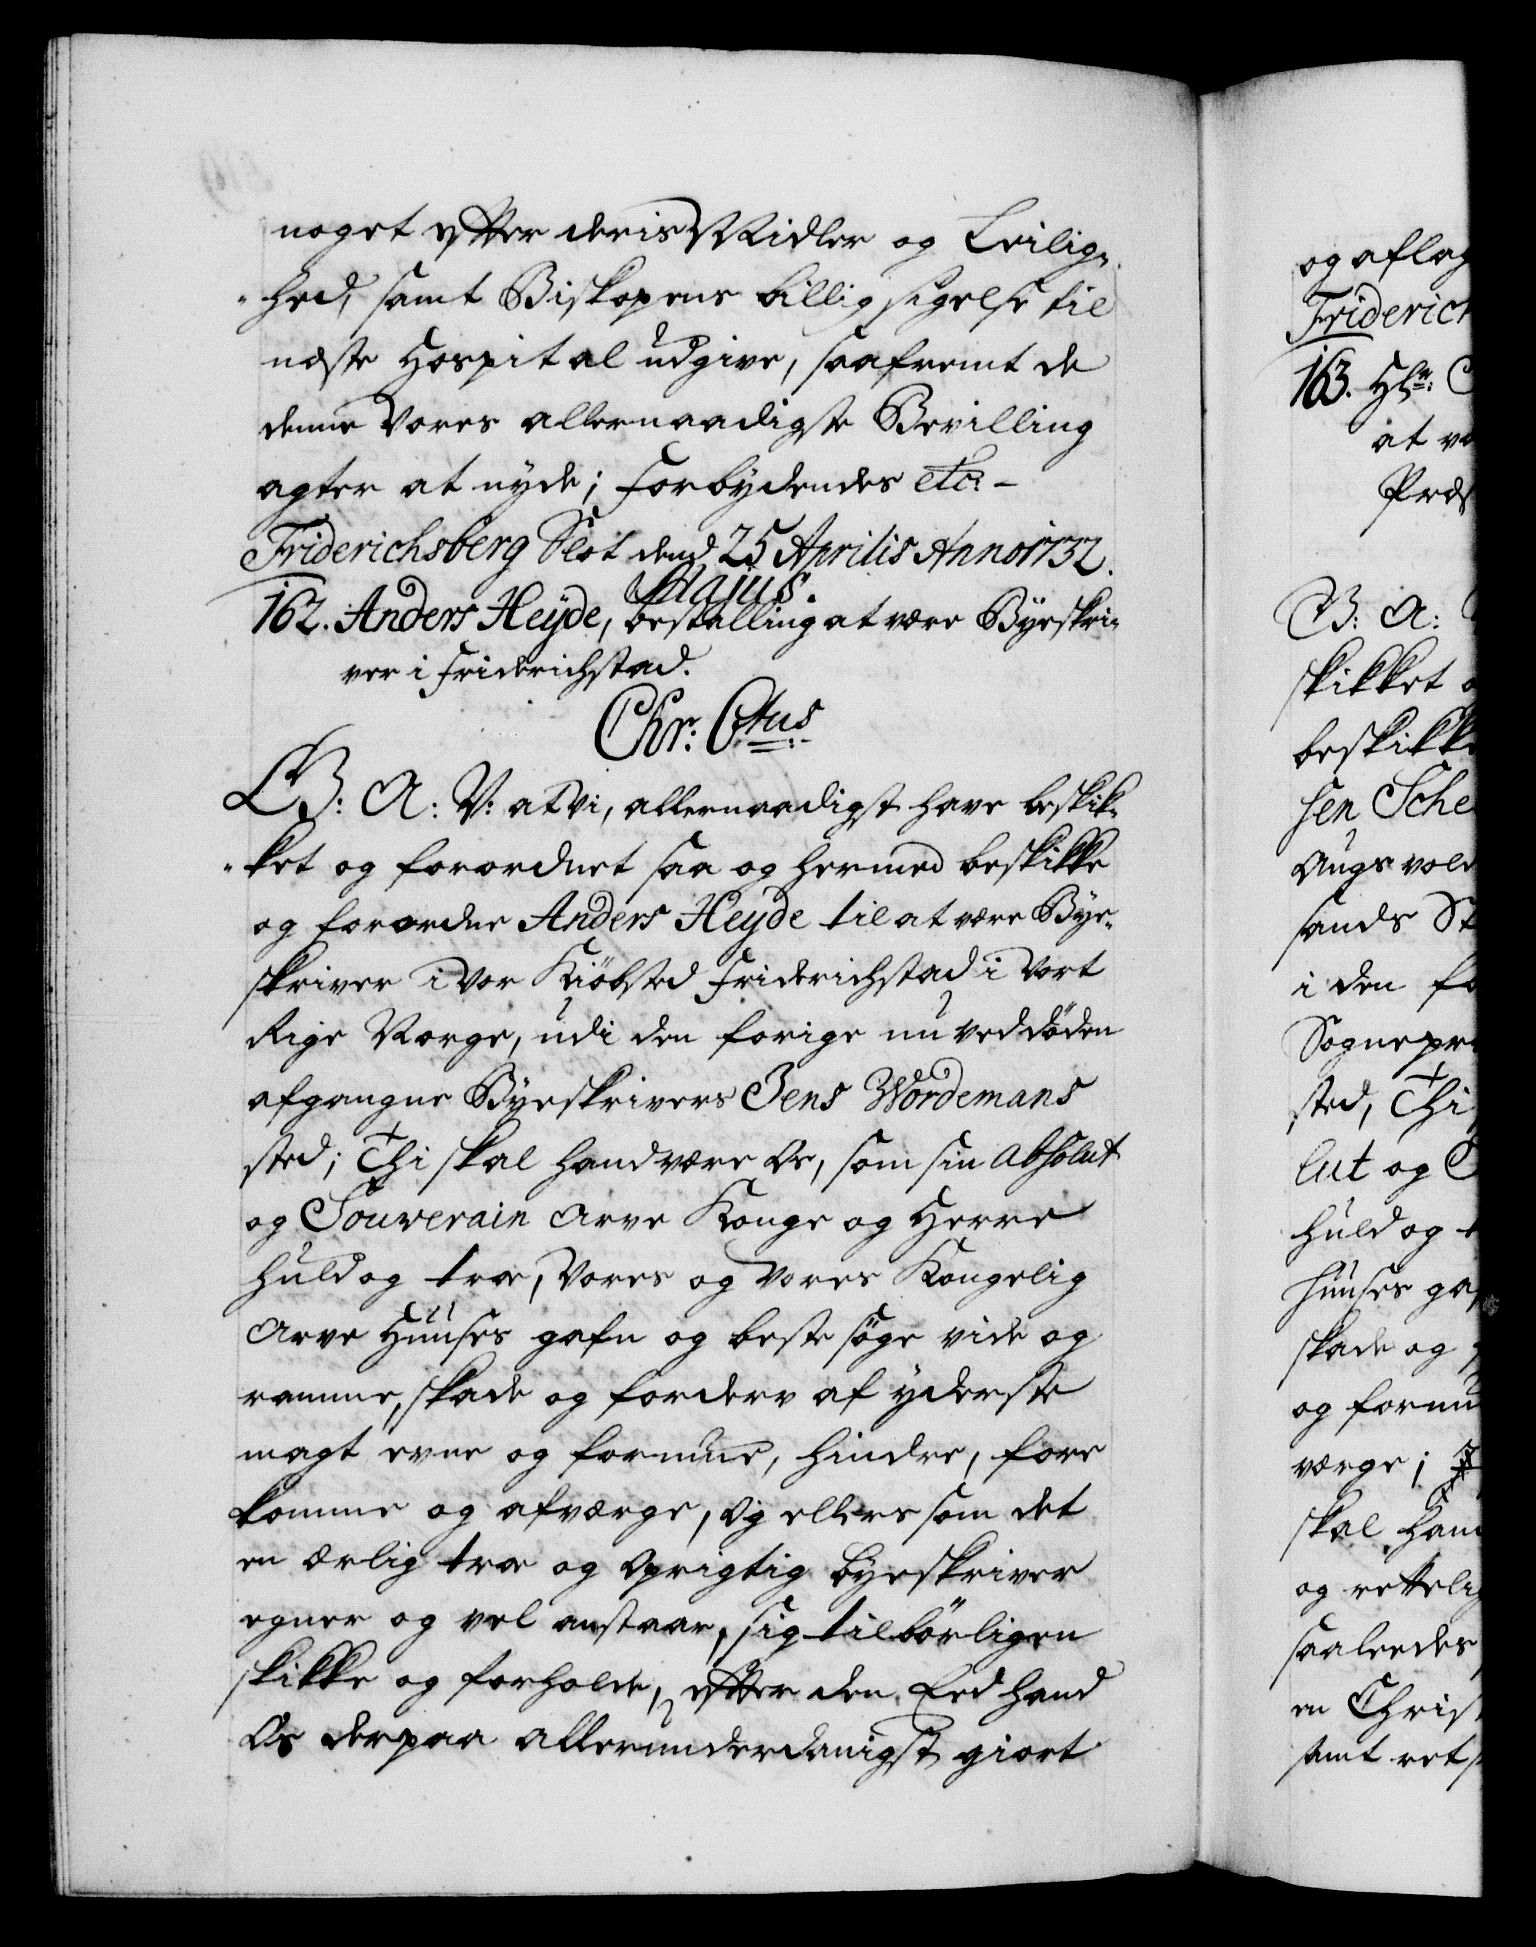 noget efter deris Midler og Leilig-
hed, samt Biskopens billig sigelse til
næste Hospital udgive, saafremt de
denne Vores allernaadigste Bevilling
agter at nyde; Forbydendes etc. -
Friderichsberg Slot dend 25 Aprilis Anno 1732.
Majus.
162. Anders Heyde, bestalling at være Byeskri-
ver i Friderichstad.
Chr: 6tus
G: A: V: at Vi, allernaadigst have beskik-
ket og forordnet saa og hermed beskikke
og forordne Anders Heyde til at være Bye-
skriver i Vor Kiöbsted Friderichstad i Vort
Rige Norge, udi den forige nu ved döden
afgangne Byeskrivers Jens Wordemans
sted; Thi skal hand være Os, som sin absolut
og Souverain Arve Konge og Herre
huld og troe, Vores og Vores Kongelig
Arve Huuses gafn og beste söge vide og
ramme, skade og forderv af yderste
magt evne og formue, hindre, fore
komme og afværge, og ellers som det
en ærlig troe og oprigtig byeskriver
egner og vel anstaar, sig tilbörligen
skikke og forholde, efter den Eed hand
Os derpaa allerunderdanigst giort
og aflag
Friderich
163. Hr: C
at væ
Præs
G: A:
skikket o
beskikke
sen Sche
Augsvold
sands St
i den fo
Sognepre
sted, Thi
lut og S
huld og t
huuses ga
skade og
og formu
værge;
skal hand
og rettelig
saaledes
en Christ
samt rets